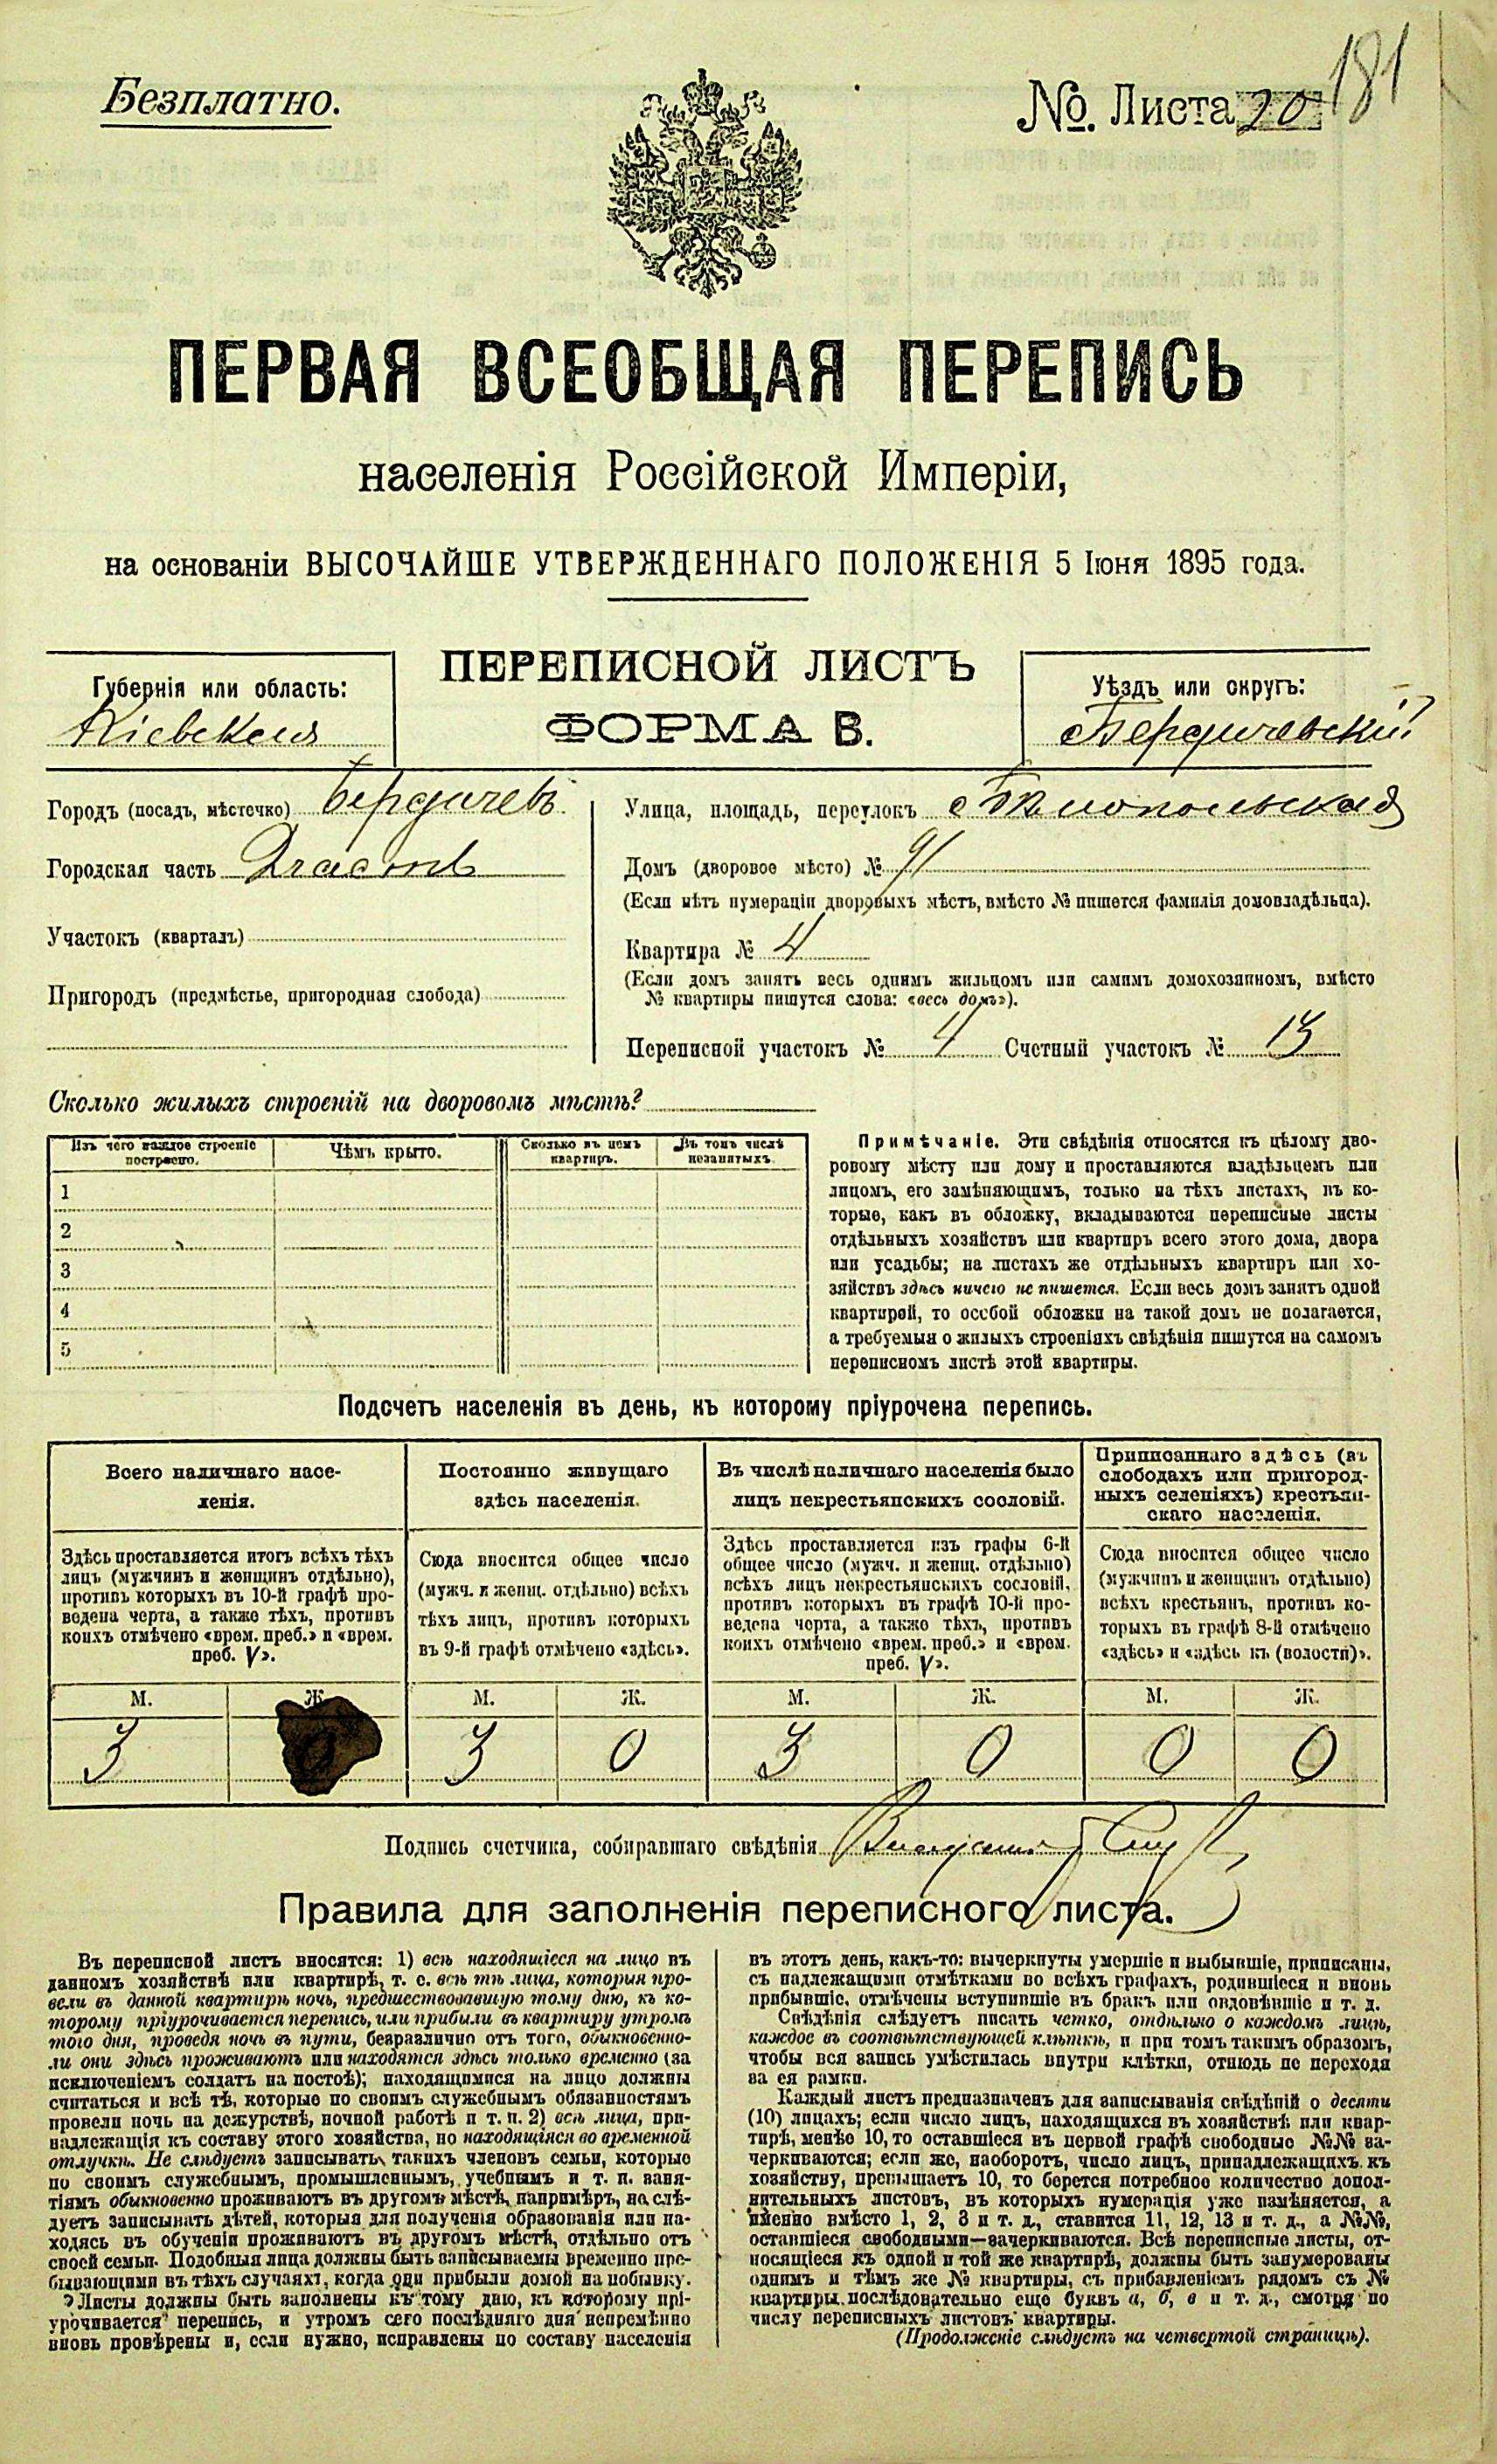 Безплатно.
№. Листа 20
181
ПЕРВАЯ ВСЕОБЩАЯ ПЕРЕПИСЬ
населенія Россійской Имперіи,
на основаніи ВЫСОЧАЙШЕ УТВЕРЖДЕННАГО ПОЛОЖЕНІЯ 5 Іюня 1895 года.
Губернія или область:
Кіевская
ПЕРЕПИСНОЙ ЛИСТЪ
ФОРМА В.
Уѣздъ или округъ:
Бердичевскій
Городъ (посадъ, мѣстечко) Бердичевъ
Городская часть
Участокъ (кварталъ)
Пригородъ (предмѣстье, пригородная слобода)
Улица, площадь, переулокъ Бѣлопольская
Домъ (дворовое мѣсто) № 91
(Если нѣтъ нумераціи дворовыхъ мѣстъ, вмѣсто № пишется фамилія домовладѣльца).
Квартира № 4
(Если домъ занятъ весь однимъ жильцомъ или самимъ домохозяиномъ, вмѣсто
№ квартиры пишутся слова: «весь домъ»).
Переписной участокъ № 4 Счетный участокъ № 13
Сколько жилыхъ строеній на дворовомъ мѣстѣ?
Изъ чего каждое строеніе
построено.
Чѣмъ крыто.
Сколько въ немъ
квартиръ.
Въ томъ числѣ
незанятыхъ.
1
2
3
4
5
Примѣчаніе. Эти свѣдѣнія относятся къ цѣлому дво-
ровому мѣсту или дому и проставляются владѣльцемъ или
лицомъ, его замѣняющимъ, только на тѣхъ листахъ, въ ко-
торые, какъ въ обложку, вкладываются переписные листы
отдѣльныхъ хозяйствъ или квартиръ всего этого дома, двора
или усадьбы; на листахъ же отдѣльныхъ квартиръ или хо-
зяйствъ здѣсь ничего не пишется. Если весь домъ занятъ одной
квартирой, то особой обложки на такой домъ не полагается,
а требуемыя о жилыхъ строеніяхъ свѣдѣнія пишутся на самомъ
переписномъ листѣ этой квартиры.
Подсчетъ населенія въ день, къ которому пріурочена перепись.
Всего наличнаго насе-
ленія.
Здѣсь проставляется итогъ всѣхъ тѣхъ
лицъ (мужчинъ и женщинъ отдѣльно),
противъ которыхъ въ 10-й графѣ про-
ведена черта, а также тѣхъ, противъ
коихъ отмѣчено «врем. преб.» и «врем.
преб. V».
Постоянно живущаго
здѣсь населенія.
Сюда вносится общее число
(мужч. и женщ. отдѣльно) всѣхъ
тѣхъ лицъ, противъ которыхъ
въ 9-й графѣ отмѣчено «здѣсь».
Въ числѣ наличнаго населенія было
лицъ некрестьянскихъ сословій.
Здѣсь проставляется изъ графы 6-й
общее число (мужч. и женщ. отдѣльно)
всѣхъ лицъ некрестьянскихъ сословій,
противъ которыхъ въ графѣ 10-й про-
ведена черта, а также тѣхъ, противъ
коихъ отмѣчено «врем. преб.» и «врем.
преб. V».
Приписаннаго здѣсь (въ
слободахъ или пригород-
ныхъ селеніяхъ) крестьян-
скаго населенія.
Сюда вносится общее число
(мужчинъ и женщинъ отдѣльно)
всѣхъ крестьянъ, противъ ко-
торыхъ въ графѣ 8-й отмѣчено
«здѣсь» и «здѣсь къ (волости)».
М. Ж. М. Ж. М. Ж. М. Ж.
3 0 3 0 3 0 0 0
Подпись счетчика, собиравшаго свѣдѣнія
Правила для заполненія переписного листа.
Въ переписной листъ вносятся: 1) всѣ находящіеся на лицо въ
данномъ хозяйствѣ или квартирѣ, т. е. всѣ тѣ лица, которыя про-
вели въ данной квартирѣ ночь, предшествовавшую тому дню, къ ко-
торому пріурочивается перепись, или прибыли въ квартиру утромъ
того дня, проведя ночь въ пути, безразлично отъ того, обыкновенно-
ли они здѣсь проживаютъ или находятся здѣсь только временно (за
исключеніемъ солдатъ на постоѣ); находящимися на лицо должны
считаться и всѣ тѣ, которые по своимъ служебнымъ обязанностямъ
провели ночь на дежурствѣ, ночной работѣ и т. п. 2) всѣ лица, при-
надлежащія къ составу этого хозяйства, но находящіяся во временной
отлучкѣ. Не слѣдуетъ записывать такихъ членовъ семьи, которые
по своимъ служебнымъ, промышленнымъ, учебнымъ и т. п. заня-
тіямъ обыкновенно проживаютъ въ другомъ мѣстѣ, напримѣръ, не слѣ-
дуетъ записывать дѣтей, которыя для полученія образованія или на-
ходясь въ обученіи проживаютъ въ другомъ мѣстѣ, отдѣльно отъ
своей семьи. Подобныя лица должны быть записываемы временно пре-
бывающими въ тѣхъ случаяхъ, когда они прибыли домой на побывку.
Листы должны быть заполнены къ тому дню, къ которому прі-
урочивается перепись, и утромъ сего послѣдняго дня непремѣнно
вновь провѣрены и, если нужно, исправлены по составу населенія
въ этотъ день, какъ-то: вычеркнуты умершіе и выбывшіе, приписаны,
съ надлежащими отмѣтками во всѣхъ графахъ, родившіеся и вновь
прибывшіе, отмѣчены вступившіе въ бракъ или овдовѣвшіе и т. д.
Свѣдѣнія слѣдуетъ писать четко, отдѣльно о каждомъ лицѣ,
каждое въ соотвѣтствующей клѣткѣ, и при томъ такимъ образомъ,
чтобы вся запись умѣстилась внутри клѣтки, отнюдь не переходя
за ея рамки.
Каждый листъ предназначенъ для записыванія свѣдѣній о десяти
(10) лицахъ; если число лицъ, находящихся въ хозяйствѣ или квар-
тирѣ, менѣе 10, то оставшіеся въ первой графѣ свободные №№ за-
черкиваются; если же, наоборотъ, число лицъ, принадлежащихъ къ
хозяйству, превышаетъ 10, то берется потребное количество допол-
нительныхъ листовъ, въ которыхъ нумерація уже измѣняется, а
именно вмѣсто 1, 2, 3 и т. д., ставится 11, 12, 13 и т. д., а №№,
оставшіеся свободными—зачеркиваются. Всѣ переписные листы, от-
носящіеся къ одной и той же квартирѣ, должны быть занумерованы
однимъ и тѣмъ же № квартиры, съ прибавленіемъ рядомъ съ №
квартиры послѣдовательно еще буквъ а, б, в и т. д., смотря по
числу переписныхъ листовъ квартиры.
(Продолженіе слѣдуетъ на четвертой страницѣ).